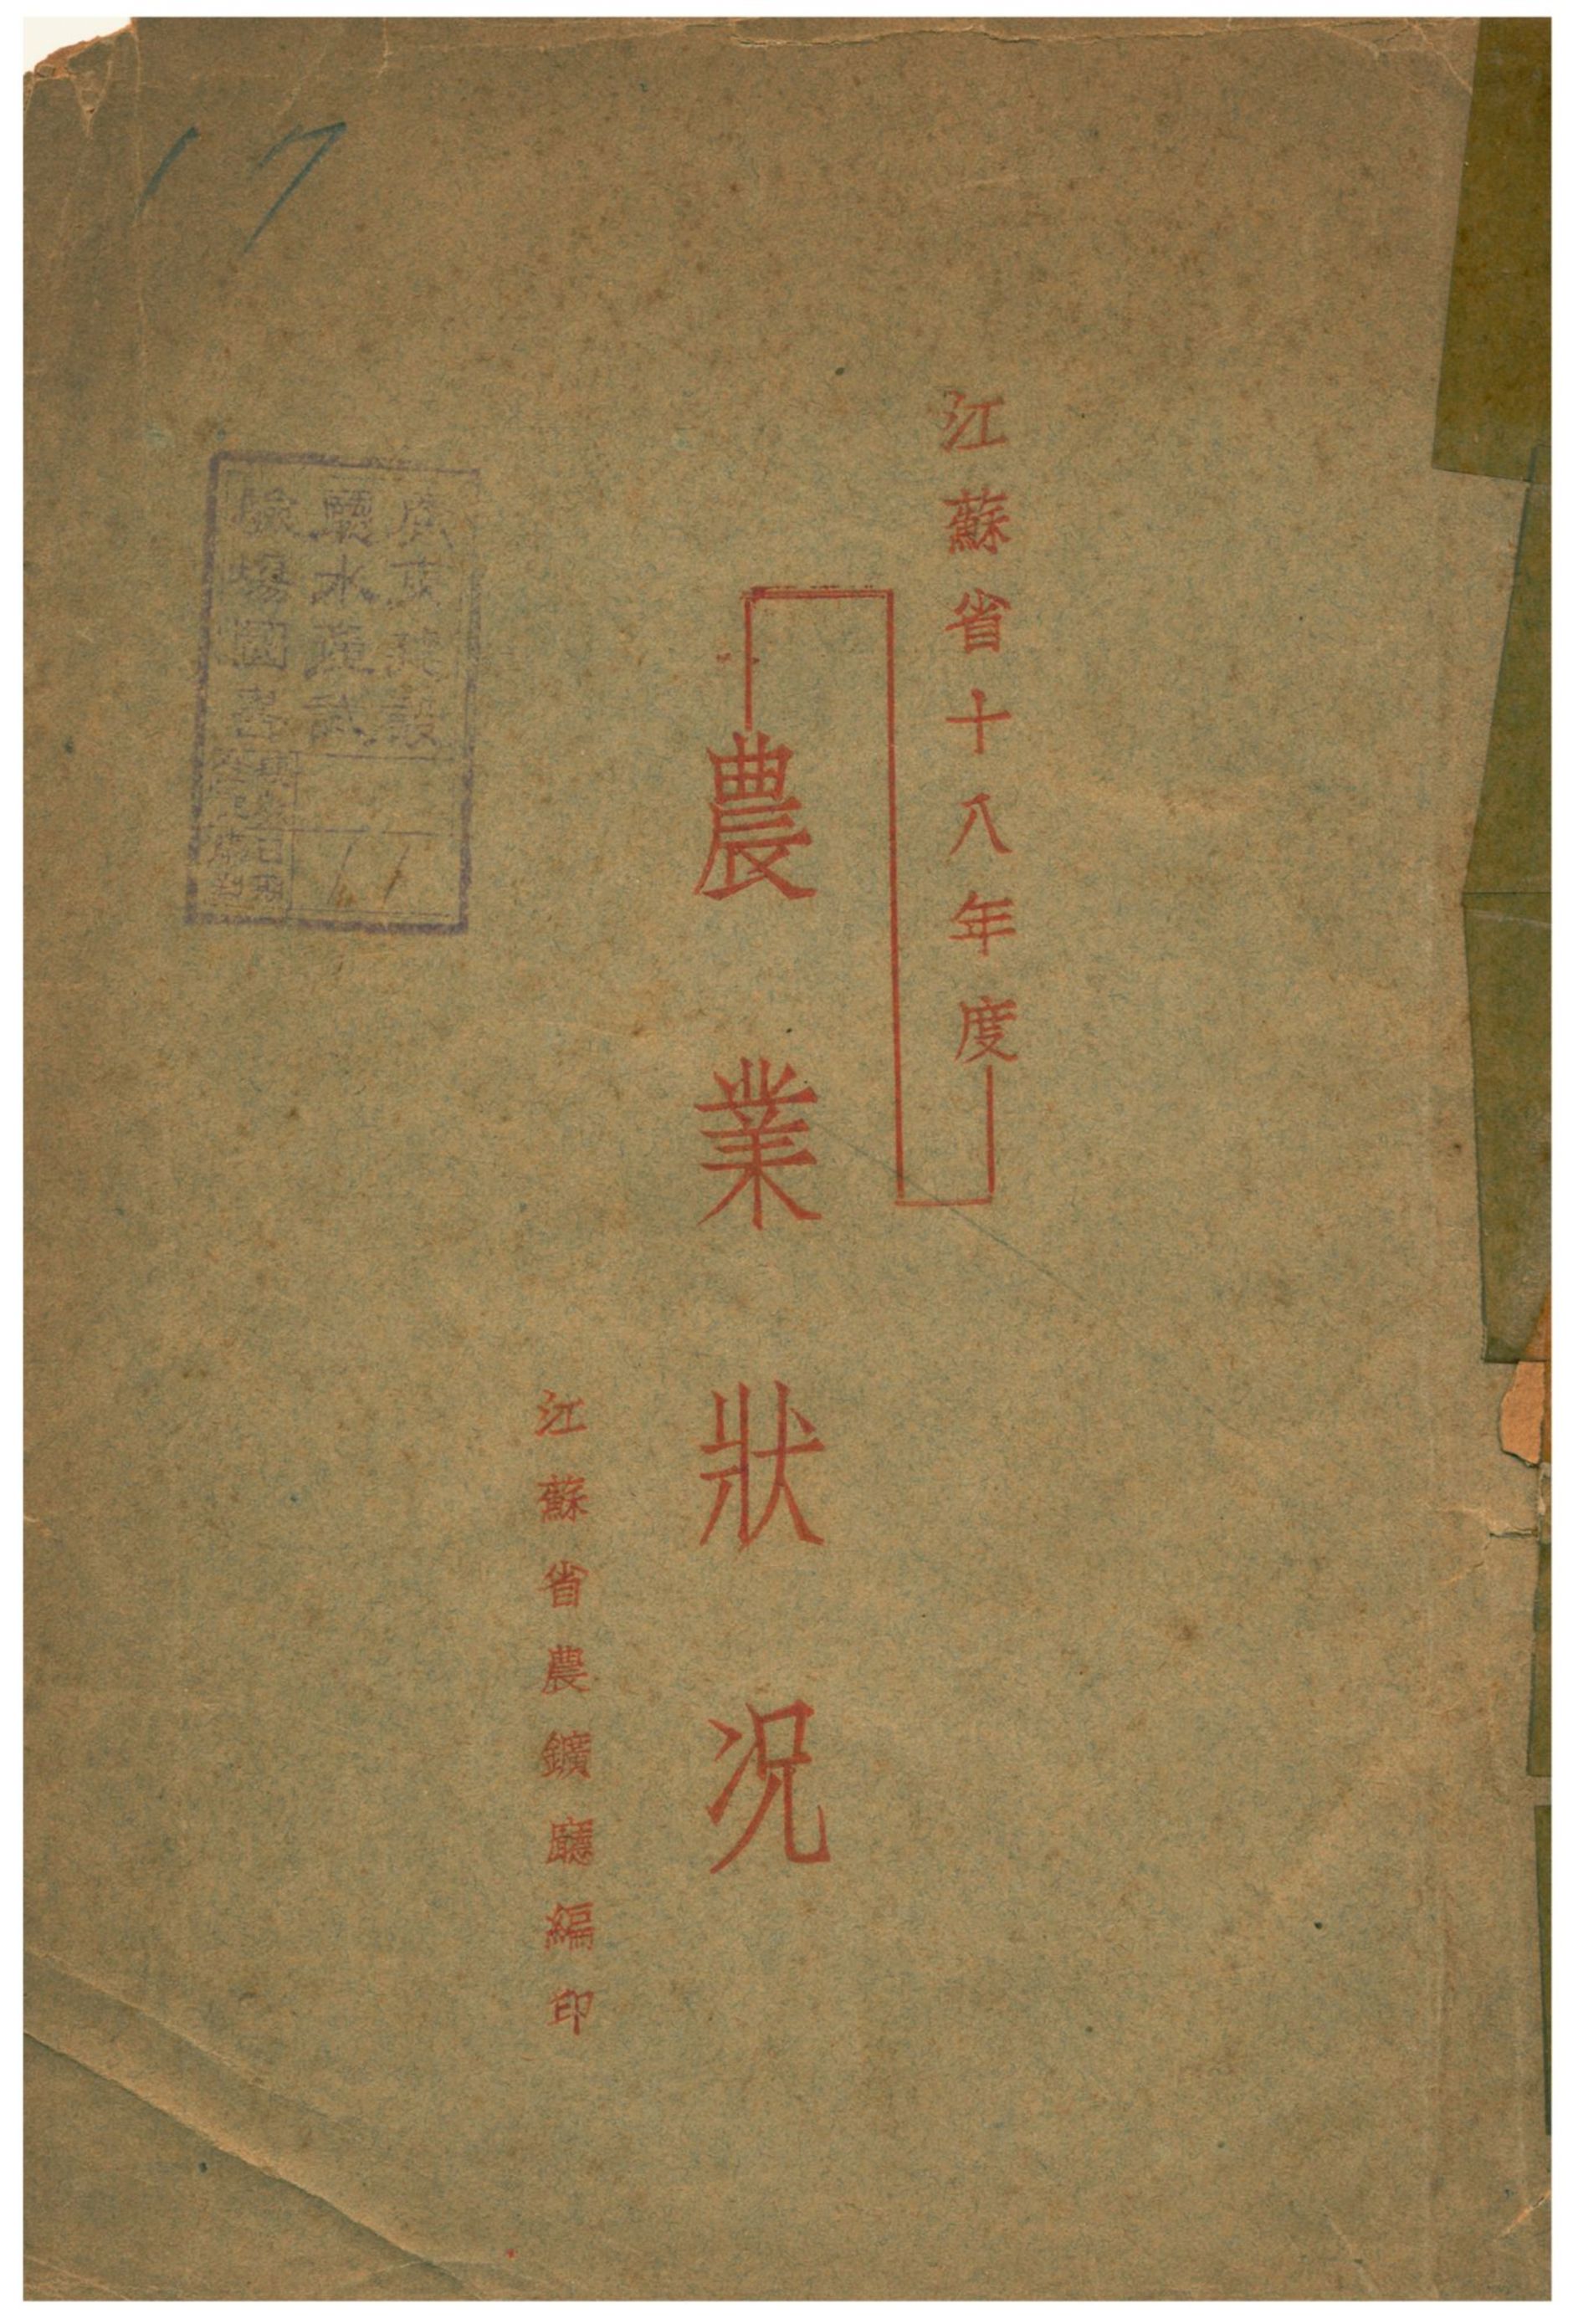 江蘇省十八年度
農業狀况
江蘇省農鑛廳編印
廣東建設
廳水產試
驗場圖書
17